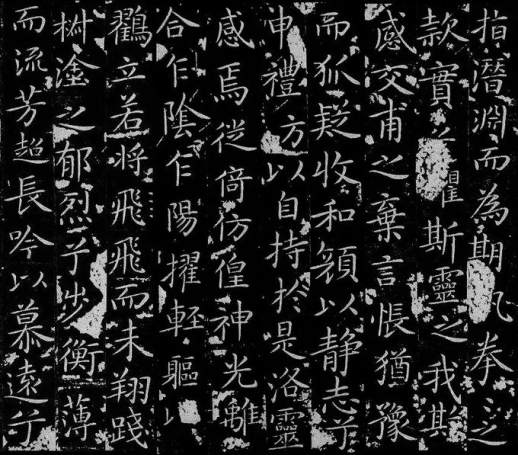 指潛淵而為期拳〻之
款實斯靈之我欺
感交甫之棄言悵猶豫
而狐疑收和顏以靜志兮
申禮方以自持於是洛靈
感焉徙倚仿偟神光離
合乍陰乍陽擢輕軀以
鸖立若將飛飛而未翔踐
椒塗之郁烈兮步衡薄
而流芳超長吟以慕遠兮